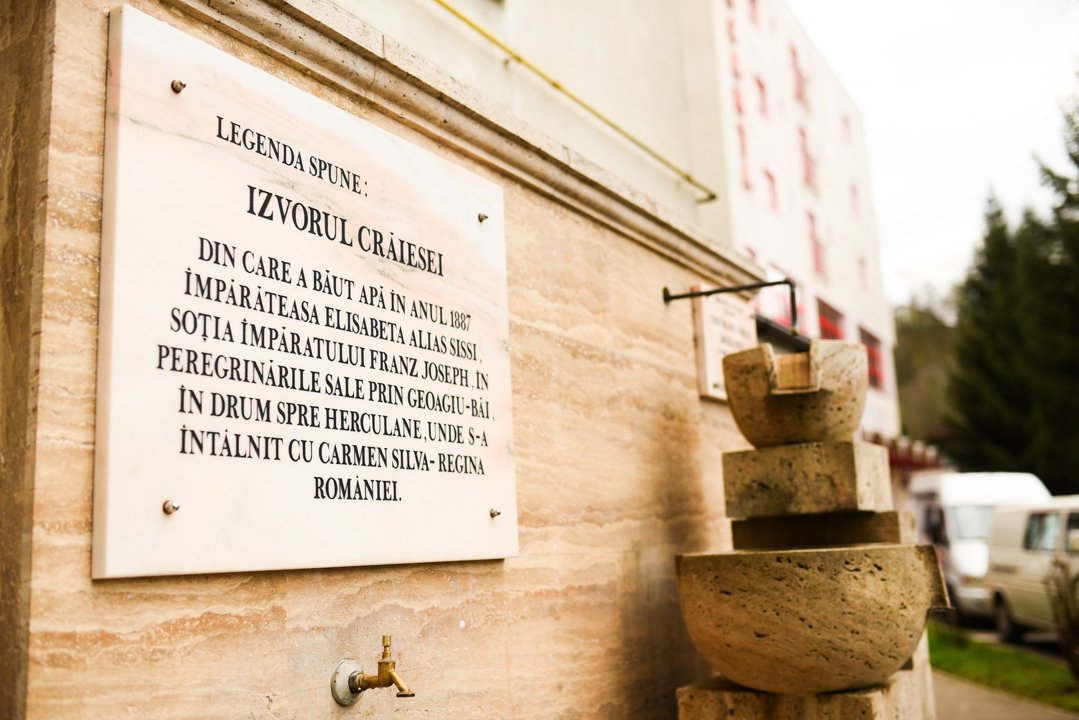 LEGENDA SPUNE:
IZVORUL CRĂIESEI
DIN CARE A BĂUT APĂ ÎN ANUL 1887
ÎMPĂRĂTEASA ELISABETA ALIAS SISSI,
SOȚIA ÎMPĂRATULUI FRANZ JOSEPH, ÎN
PEREGRINĂRILE SALE PRIN GEOAGIU-BĂI,
ÎN DRUM SPRE HERCULANE, UNDE S-A
ÎNTÂLNIT CU CARMEN SILVA- REGINA
ROMÂNIEI.